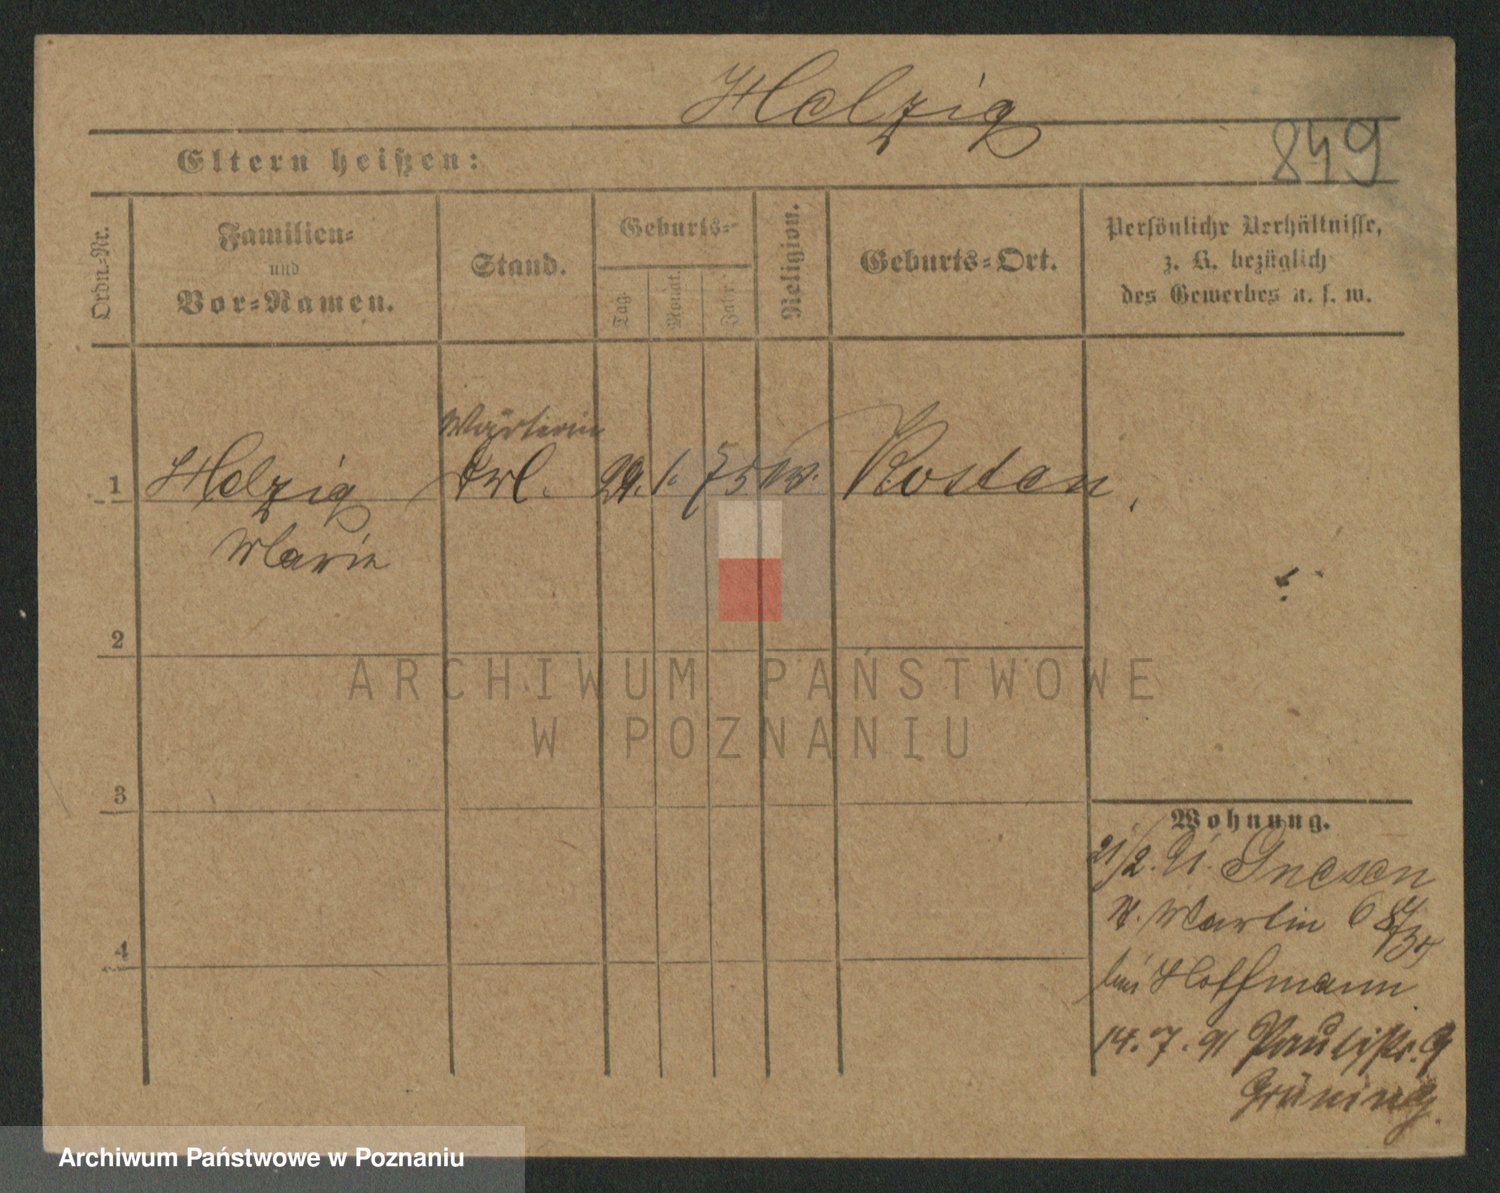 Helzig
849
Eltern heißen:
Ordn.-Nr.
Familien-
und
Vor-Namen.
Stand.
Geburts-
Tag.
Monat.
Jahr.
Religion.
Geburts-Ort.
Persönliche Verhältnisse,
z. B. bezüglich
des Gewerbes u. s. w.
Wärterin
1 Helzig 29. 1. 75 Kosten
Marie
2
3
4
Wohnung.
21/2. 91. Gnesen
St. Martin 6
bei Hoffmann
14. 7. 91 Paulistr. 9
Grüning.
ARCHIWUM PAŃSTWOWE
W POZNANIU
Archiwum Państwowe w Poznaniu